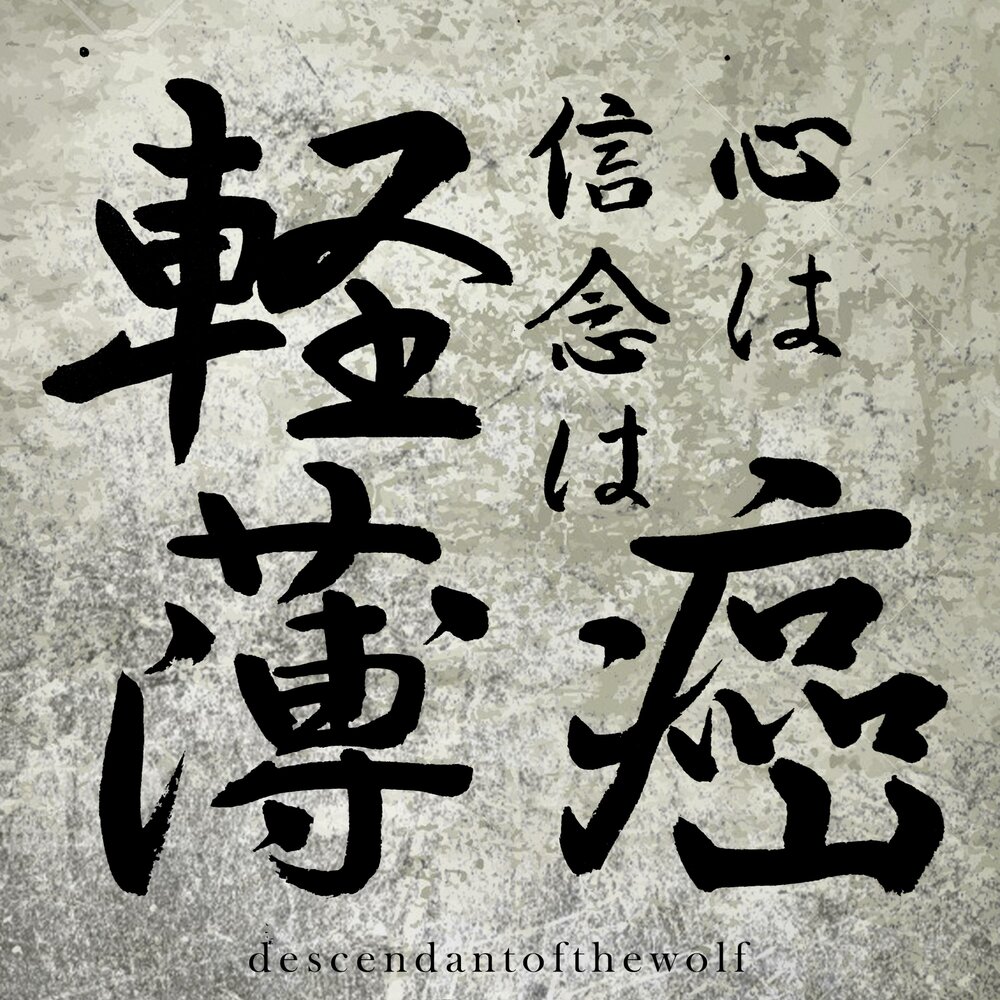 心は癌
信念は
軽薄
descendantofthewolf